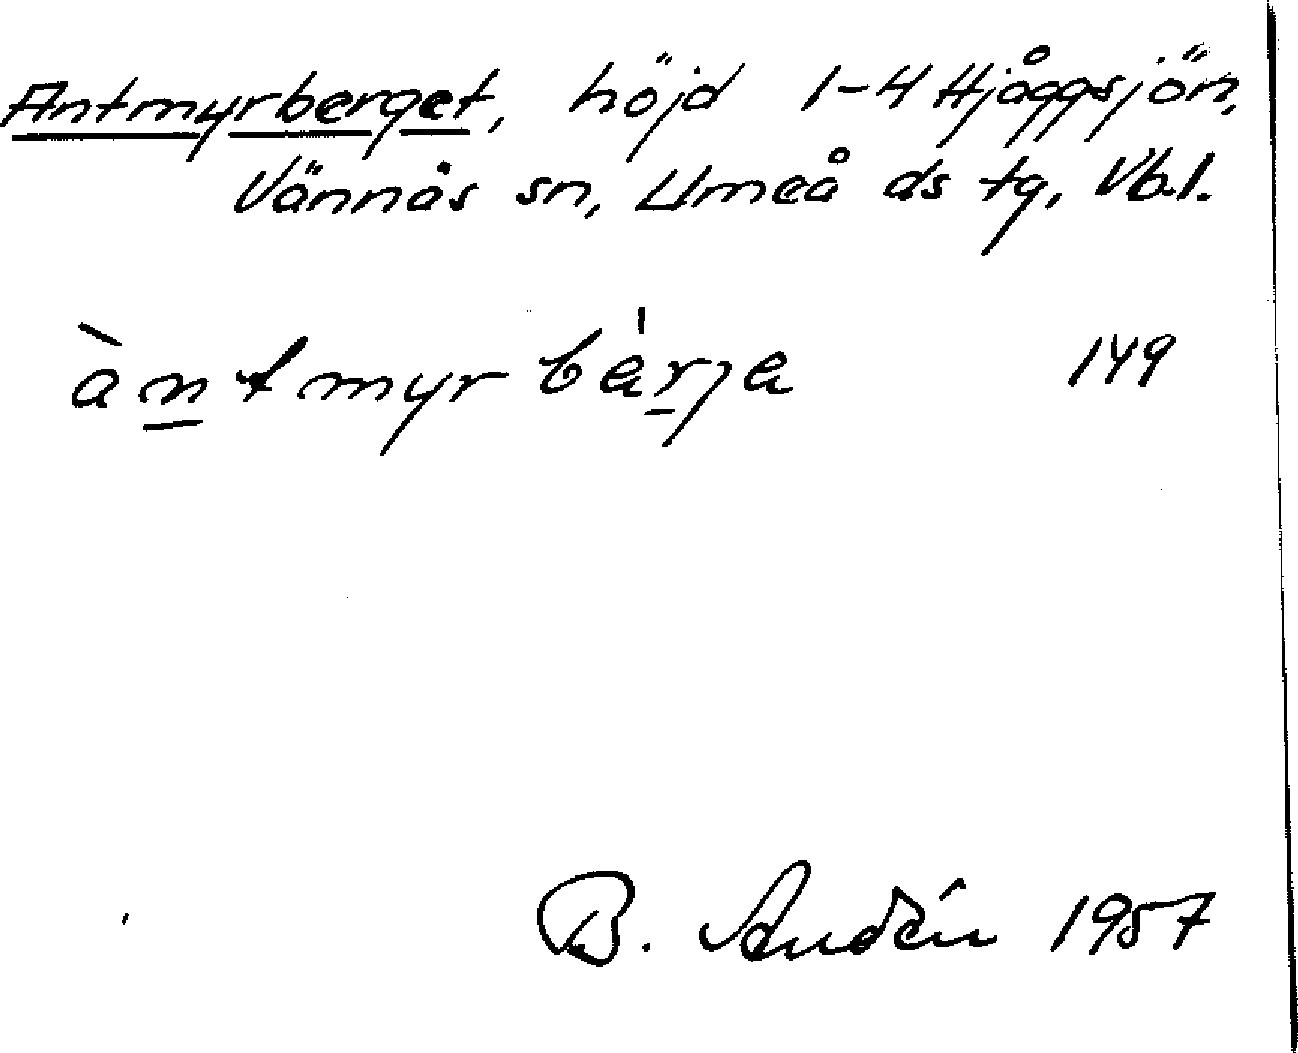 Antmyrberget, höjd 1-4 Hjåggsjön,
Vännäs sn, Umeå ds tg, Vb.l.
àntmyrbárja 149
B. Audén 1957